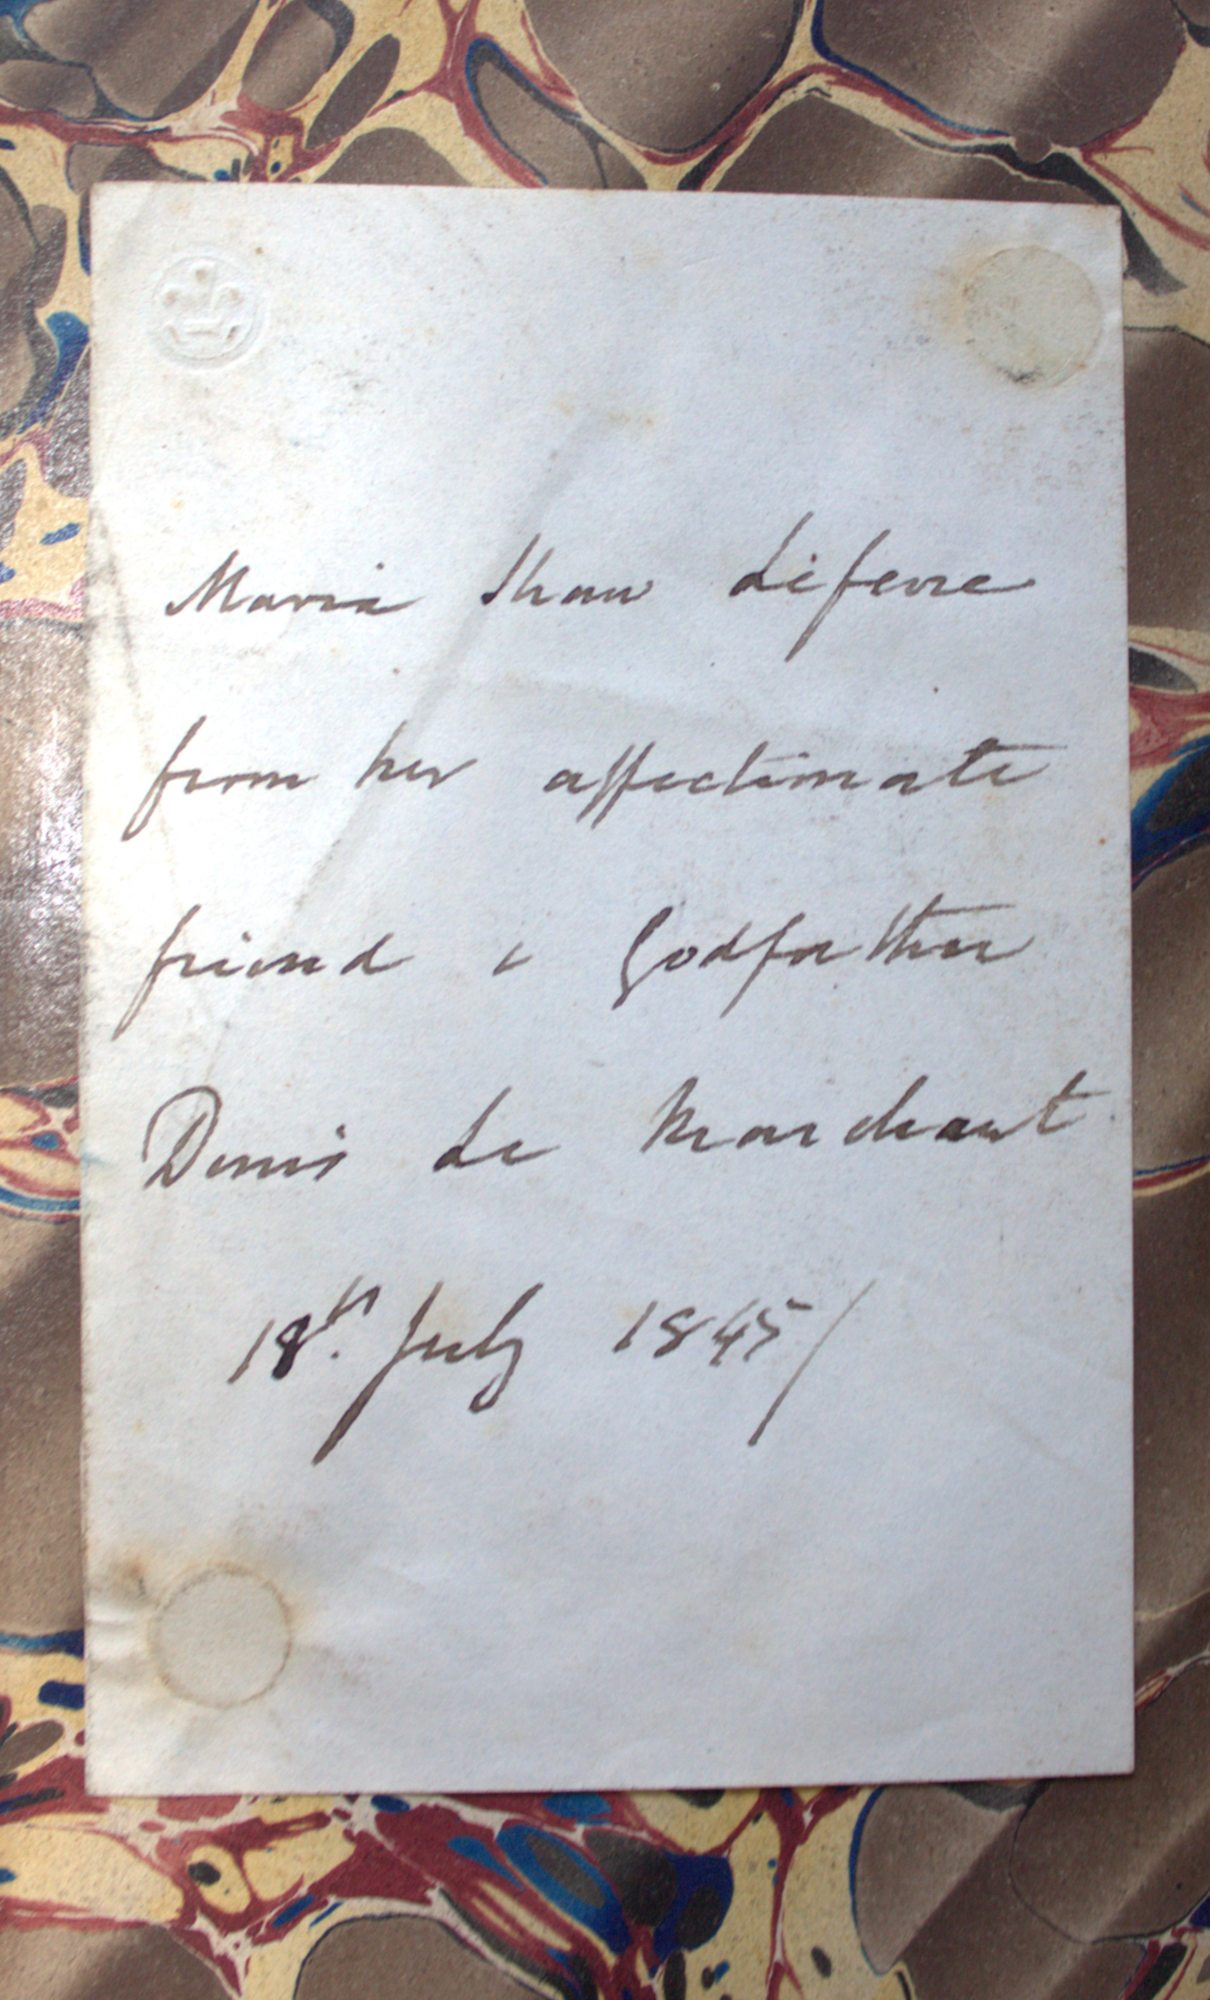 Maria Shaw Lefevre
from her affectionate
friend & Godfather
Denis Le Marchant
18th. July 1845/